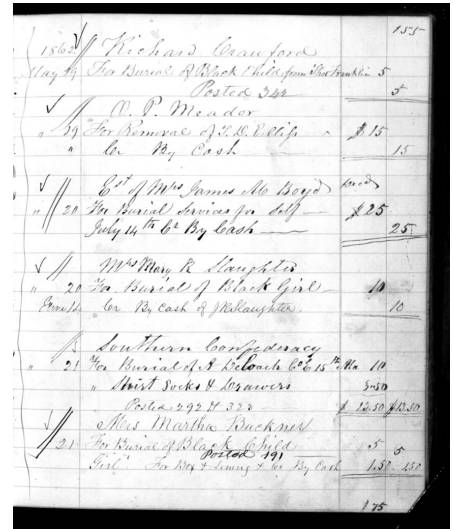 155
1862 Richard Crawford
May 19 For Burial of Black Child from Thos Franklin 5
Posted 342 5
O. P. Meador
" 29 For Removal of T. D. $15
" Cr By Cash 15
Est of Mrs James M Boyd
" 20 For Burial Services for Self $25
July 14th Cr By Cash 25
Mrs Mary R Slaughter
" 20 For Burial of Black Girl 10
June 14 Cr By Cash of Slaughter 10
Southern Confederacy
" 21 For Burial of A DeLoach Co E 15th Ala 10
" Shirt Socks & Drawers
Posted 292 & 323 $ 12.50 $13.50
Mrs Martha Buckner
21 For Burial of Black Child 5 5
Posted 191
Girl For Box & Lining & Cr By Cash 1.50 1.50
175